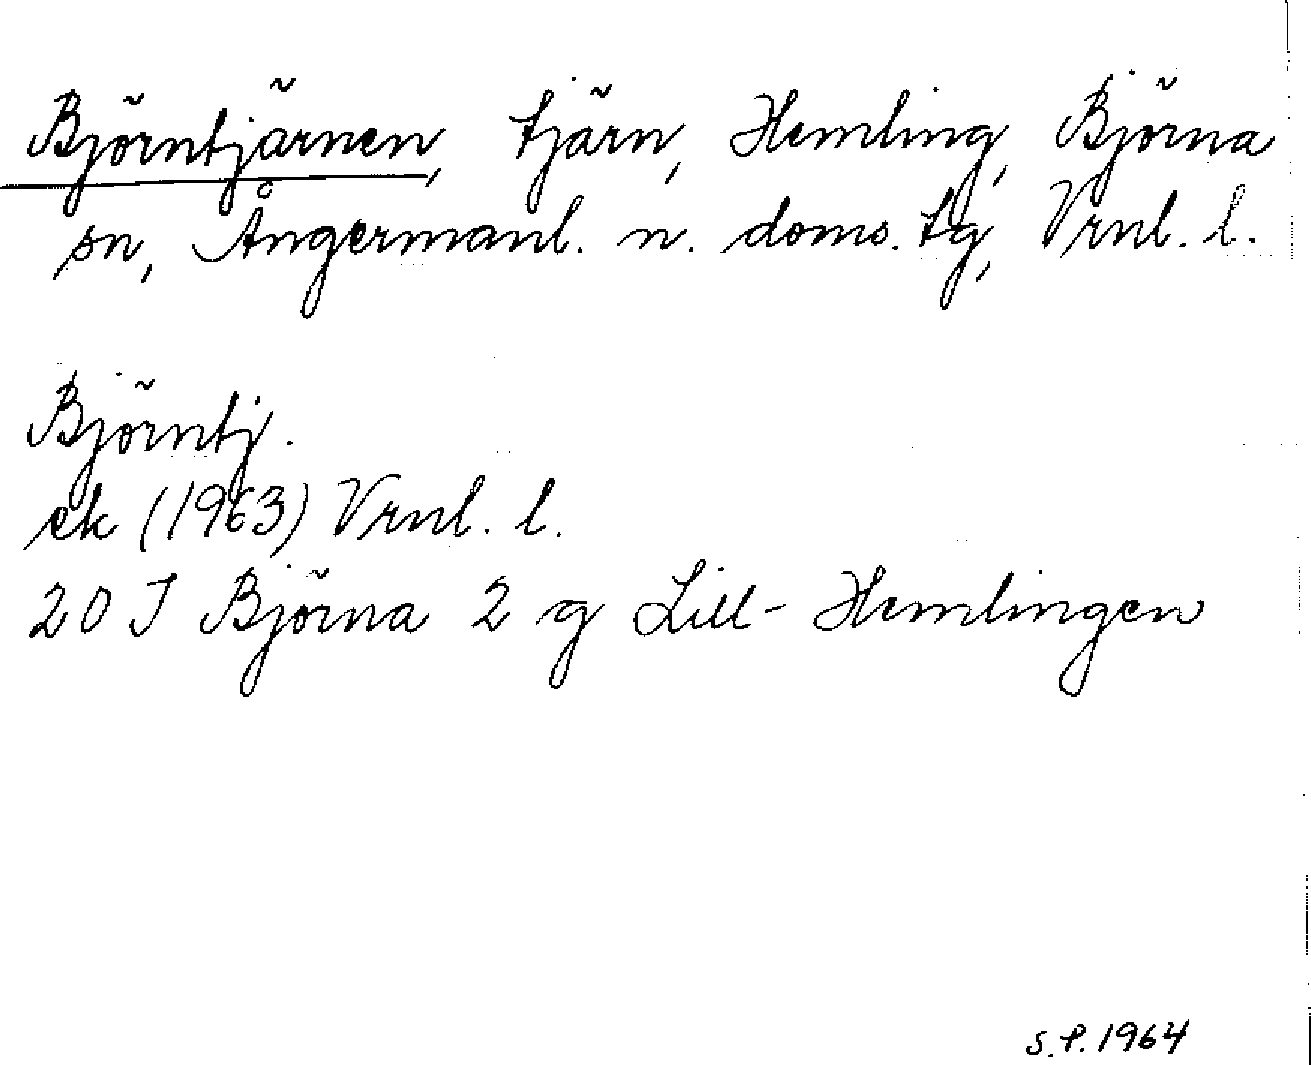 Björntjärnen, tjärn, Hemling, Björna
sn, Ångermanl. n. doms. tg, Vrnl. l.
Björntj.
ek (1963) Vrnl. l.
20 J Björna 2 g Lill-Hemlingen
S.P. 1964